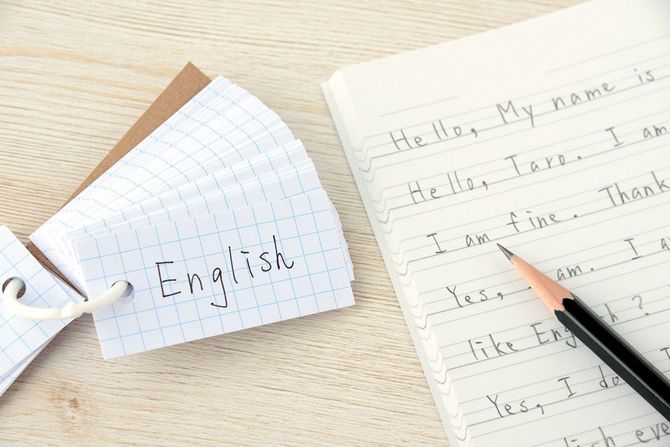 English
Hello, My name is
Hello, Taro. I am
I am fine. Thank
Yes, am. I
like English?
Yes, I do
English